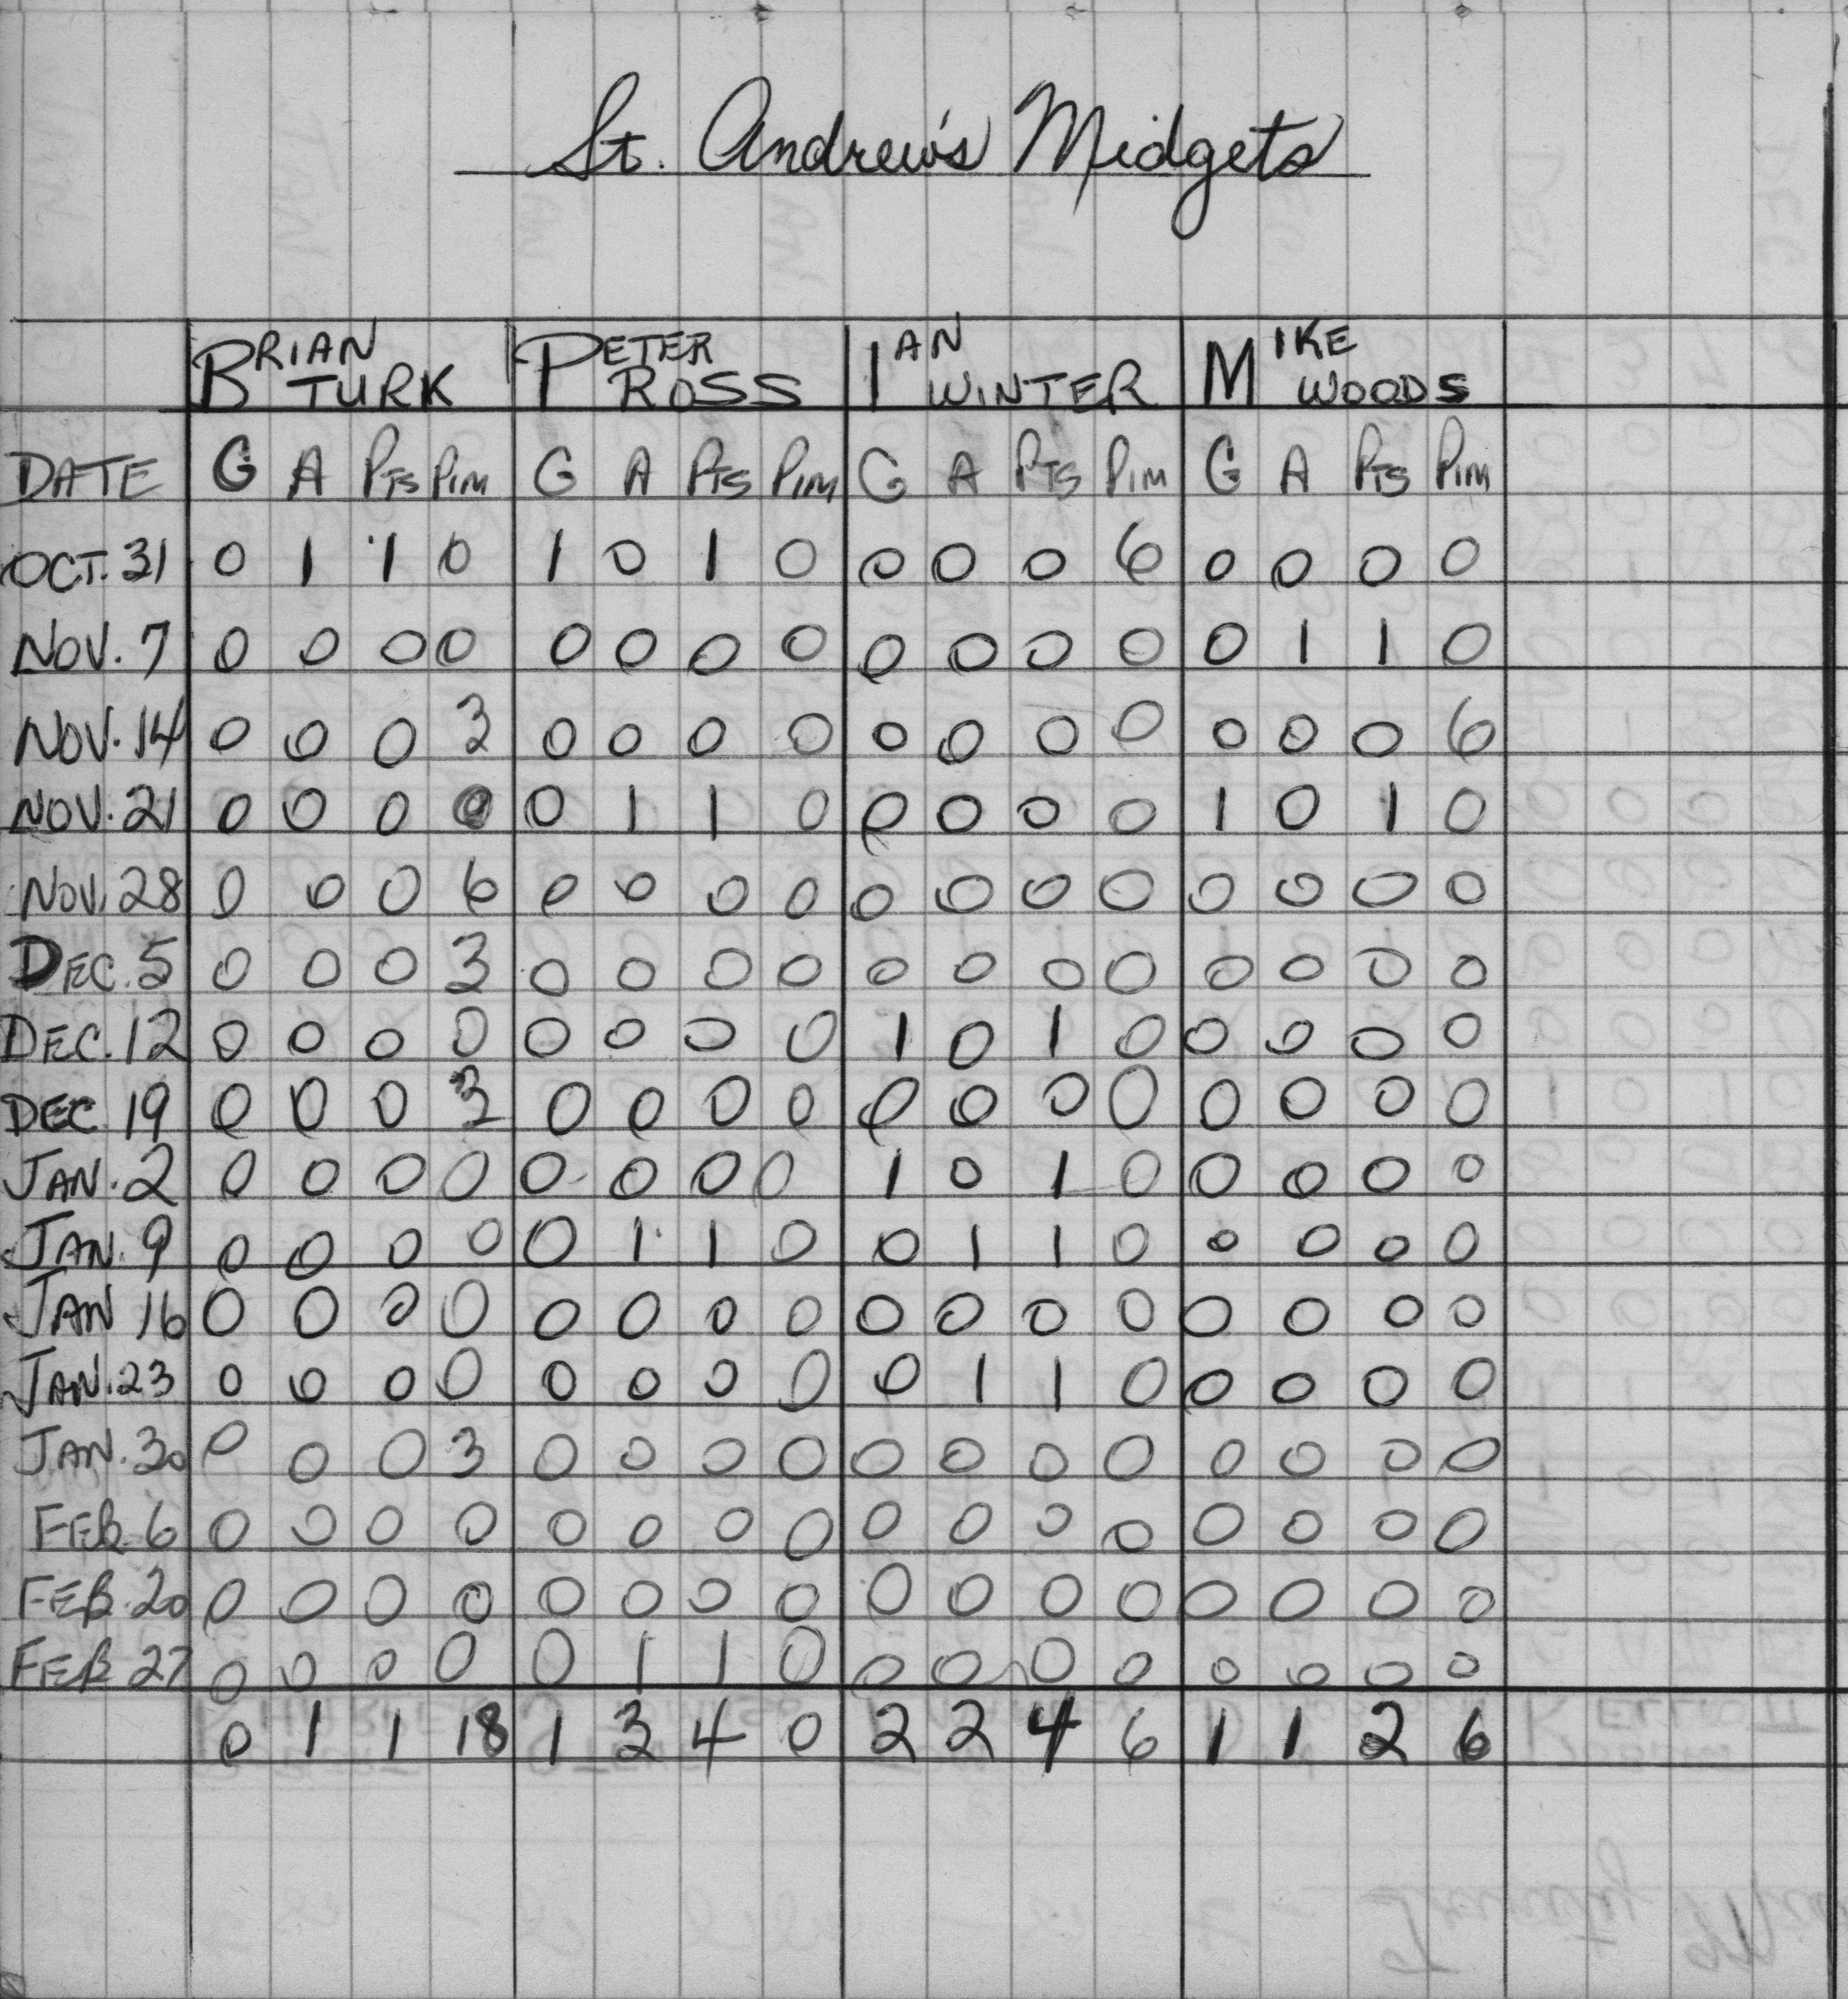 St. Andrew's Midgets
BRIAN TURK PETER ROSS IAN WINTER MIKE WOODS
DATE G A PTS PIM G A PTS PIM G A PTS PIM G A PTS PIM
OCT. 31 0 1 1 0 1 0 1 0 0 0 0 6 0 0 0 0
NOV. 7 0 0 0 0 0 0 0 0 0 0 0 0 0 1 1 0
NOV. 14 0 0 0 3 0 0 0 0 0 0 0 0 0 0 0 6
NOV. 21 0 0 0 0 0 1 1 0 0 0 0 0 1 0 1 0
NOV. 28 0 0 0 6 0 0 0 0 0 0 0 0 0 0 0 0
DEC. 5 0 0 0 3 0 0 0 0 0 0 0 0 0 0 0 0
DEC. 12 0 0 0 0 0 0 0 0 1 0 1 0 0 0 0 0
DEC. 19 0 0 0 3 0 0 0 0 0 0 0 0 0 0 0 0
JAN. 2 0 0 0 0 0 0 0 0 1 0 1 0 0 0 0 0
JAN. 9 0 0 0 0 0 1 1 0 0 1 1 0 0 0 0 0
JAN 16 0 0 0 0 0 0 0 0 0 0 0 0 0 0 0 0
JAN. 23 0 0 0 0 0 0 0 0 0 1 1 0 0 0 0 0
JAN. 30 0 0 0 3 0 0 0 0 0 0 0 0 0 0 0 0
FEB. 6 0 0 0 0 0 0 0 0 0 0 0 0 0 0 0 0
FEB. 20 0 0 0 0 0 0 0 0 0 0 0 0 0 0 0 0
FEB 27 0 0 0 0 0 1 1 0 0 0 0 0 0 0 0 0
0 1 1 18 1 3 4 0 2 2 4 6 1 1 2 6